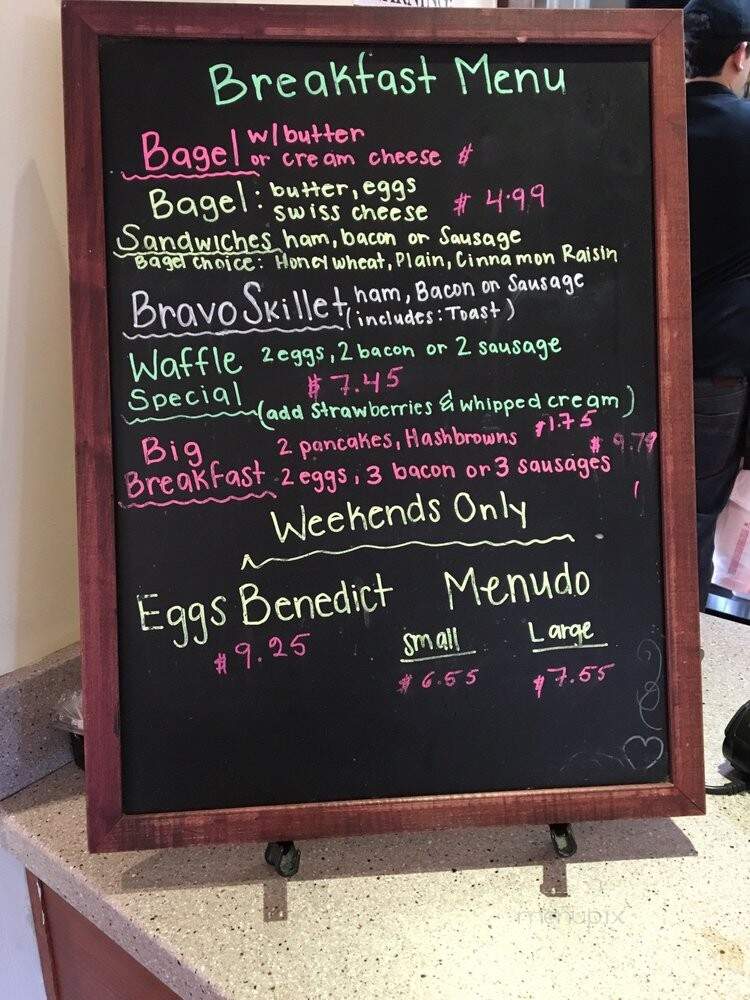 Breakfast Menu
Bagel w/butter
or cream cheese $
Bagel: butter, eggs
swiss cheese $ 4.99
Sandwiches ham, bacon or Sausage
Bagel choice: Honey wheat, Plain, Cinnamon Raisin
Bravo Skillet ham, Bacon or Sausage
(includes: Toast)
Waffle 2 eggs, 2 bacon or 2 sausage
Special $ 7.45
(add strawberries & whipped cream)
$1.75
Big 2 pancakes, Hashbrowns $ 9.79
Breakfast 2 eggs, 3 bacon or 3 sausages
Weekends Only
Eggs Benedict Menudo
$9.25 small Large
$6.55 $7.55
menupix